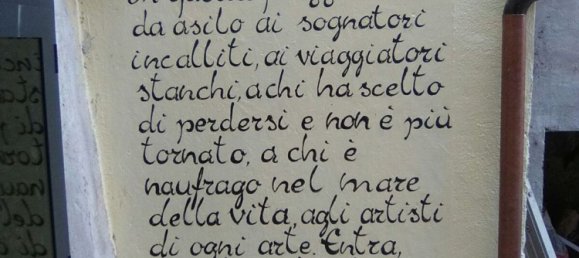 da asilo ai sognatori
incalliti, ai viaggiatori
stanchi, a chi ha scelto
di perdersi e non è più
tornato, a chi è
naufrago nel mare
della vita, agli artisti
di ogni arte. Entra,